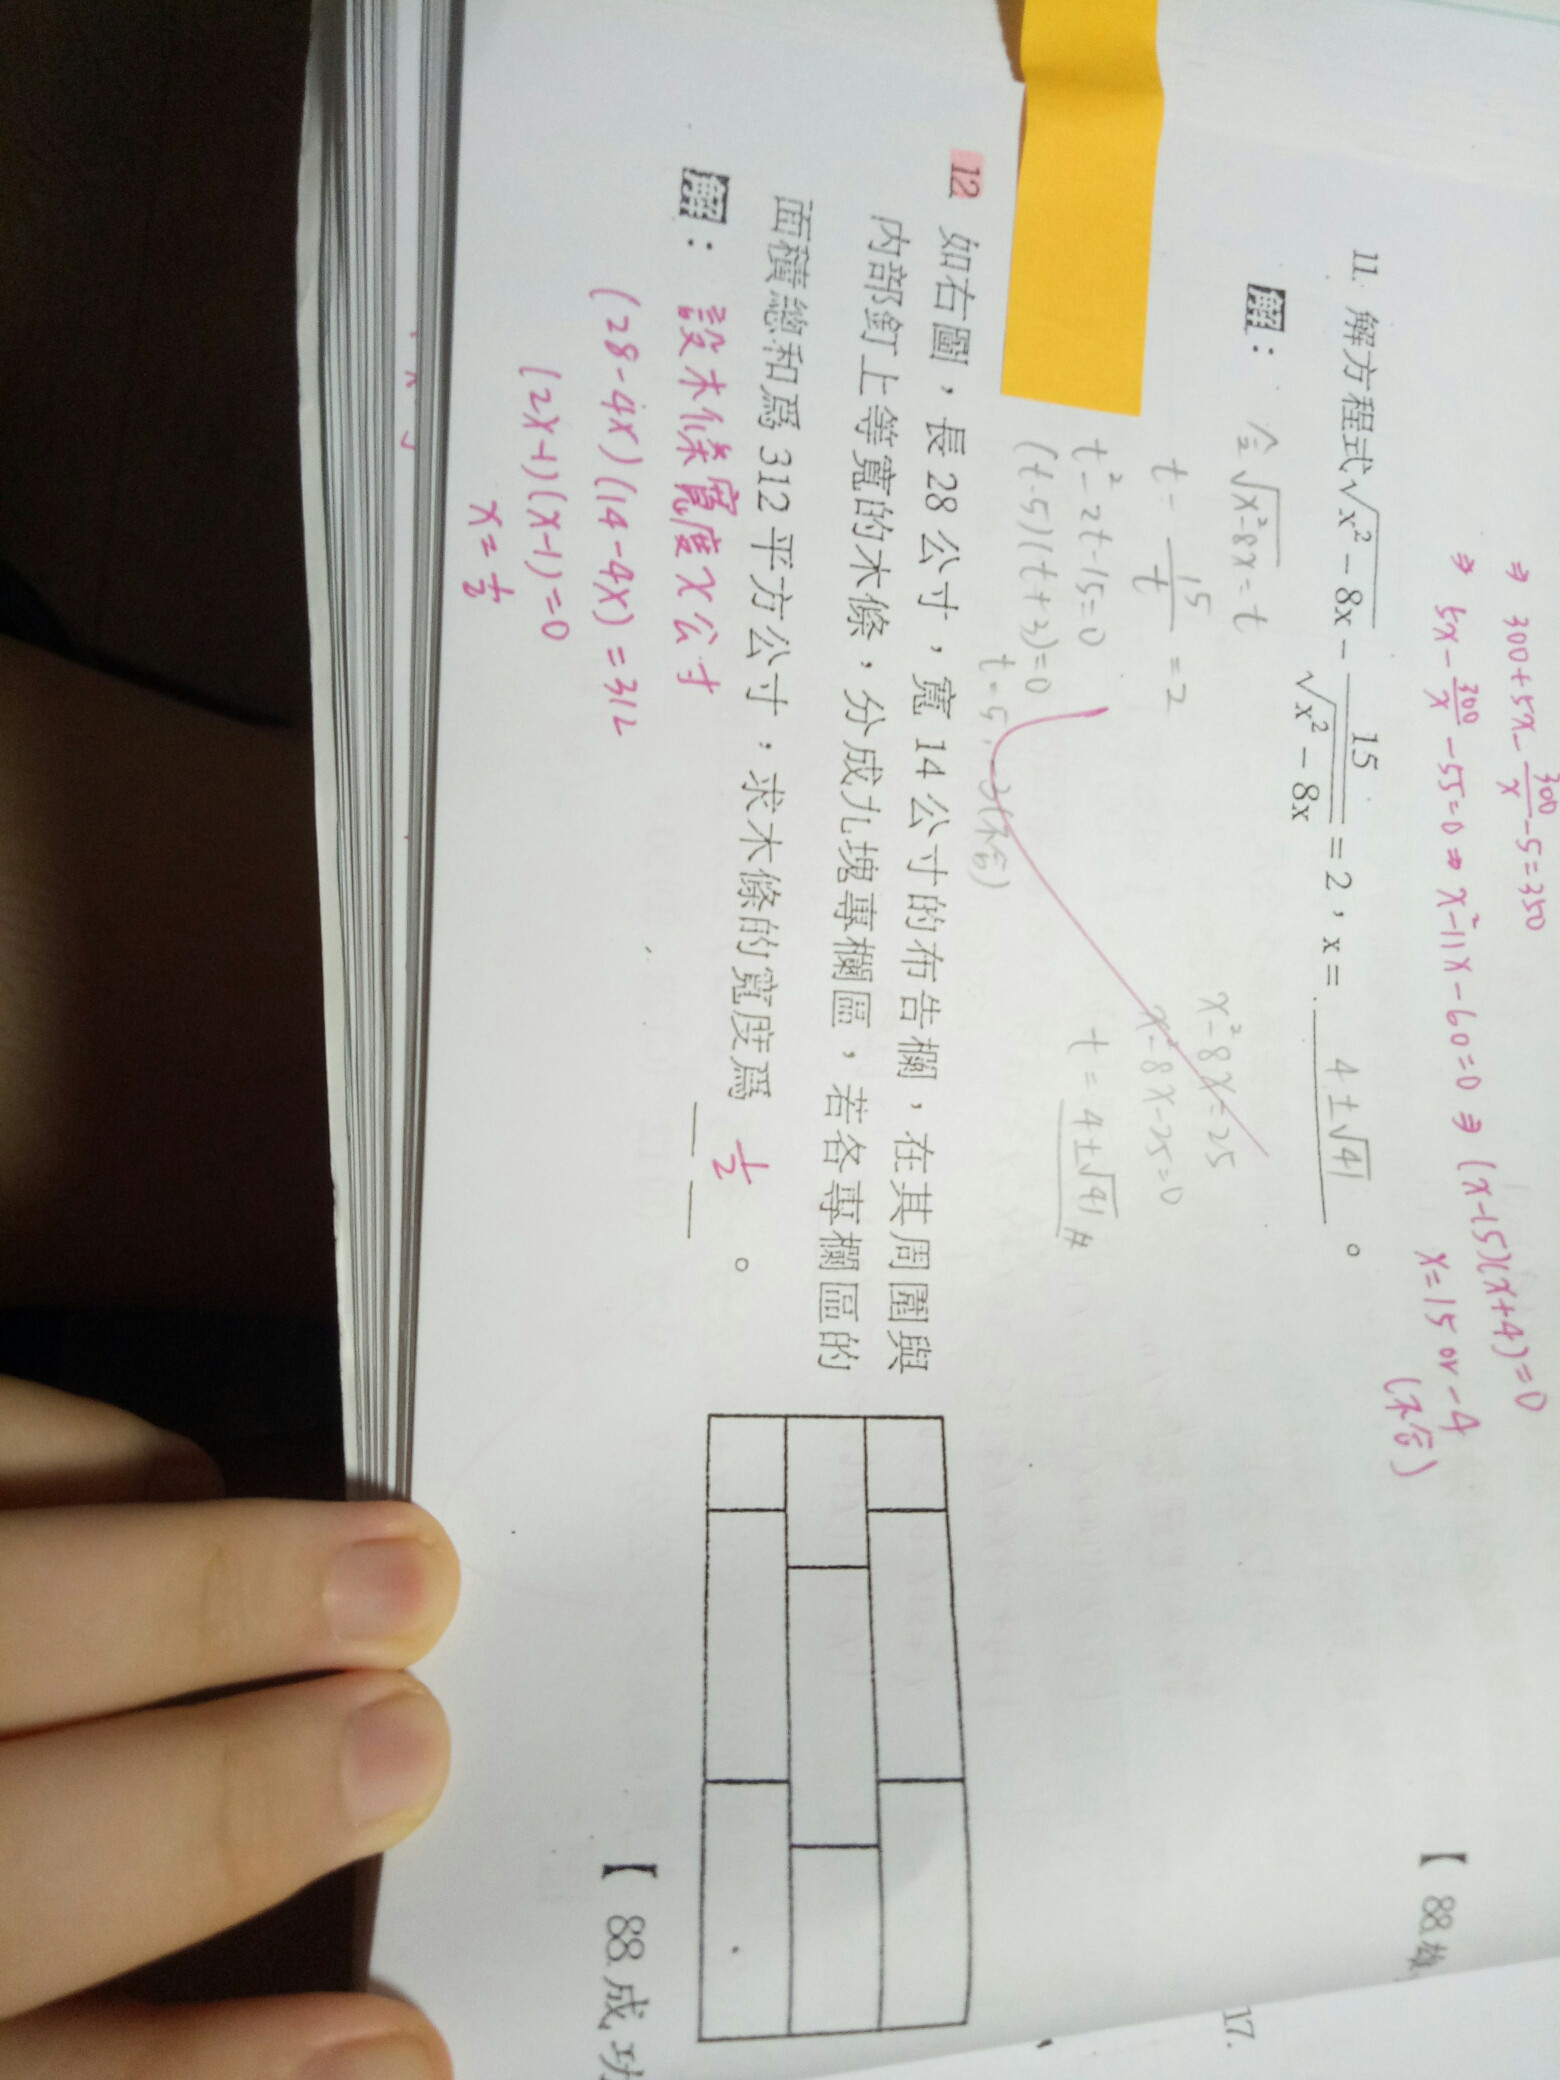 ⇒ 300+5x-300/x-5=350
⇒ 5x-300/x-55=0 ⇒ x²-11x-60=0 ⇒ (x-15)(x+4)=0
x=15 or -4
(不合)
【 88.雄
11. 解方程式√(x²-8x) - 15/√(x²-8x) = 2，x = 4±√41 。
解： 令√(x²-8x)=t
t-15/t=2
t²-2t-15=0
(t-5)(t+3)=0
t=5,-3(不合)
x²-8x=25
x²-8x-25=0
t=4±√41 #
17.
12 如右圖，長28公寸，寬14公寸的布告欄，在其周圍與
內部釘上等寬的木條，分成九塊專欄區，若各專欄區的
面積總和爲312平方公寸；求木條的寬度爲 1/2 。
解： 設木條寬度x公寸
(28-4x)(14-4x)=312
(2x-1)(x-1)=0
x=1/2
【 88.成功